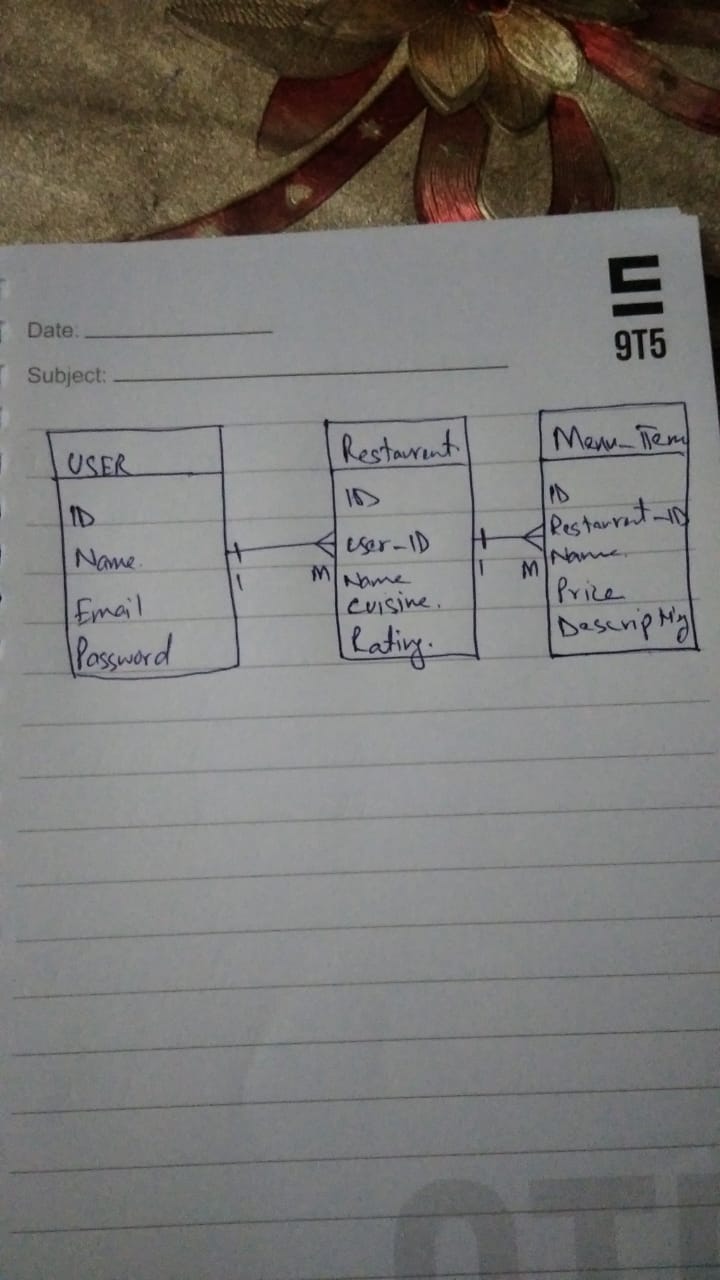 9T5
Date:
Subject:
USER
ID
Name.
Email
Password
1
M
Restaurent
ID
user-ID
Name
cuisine.
Rating.
1
M
Menu_Item
ID
Restaurent-ID
Name.
Price
Description